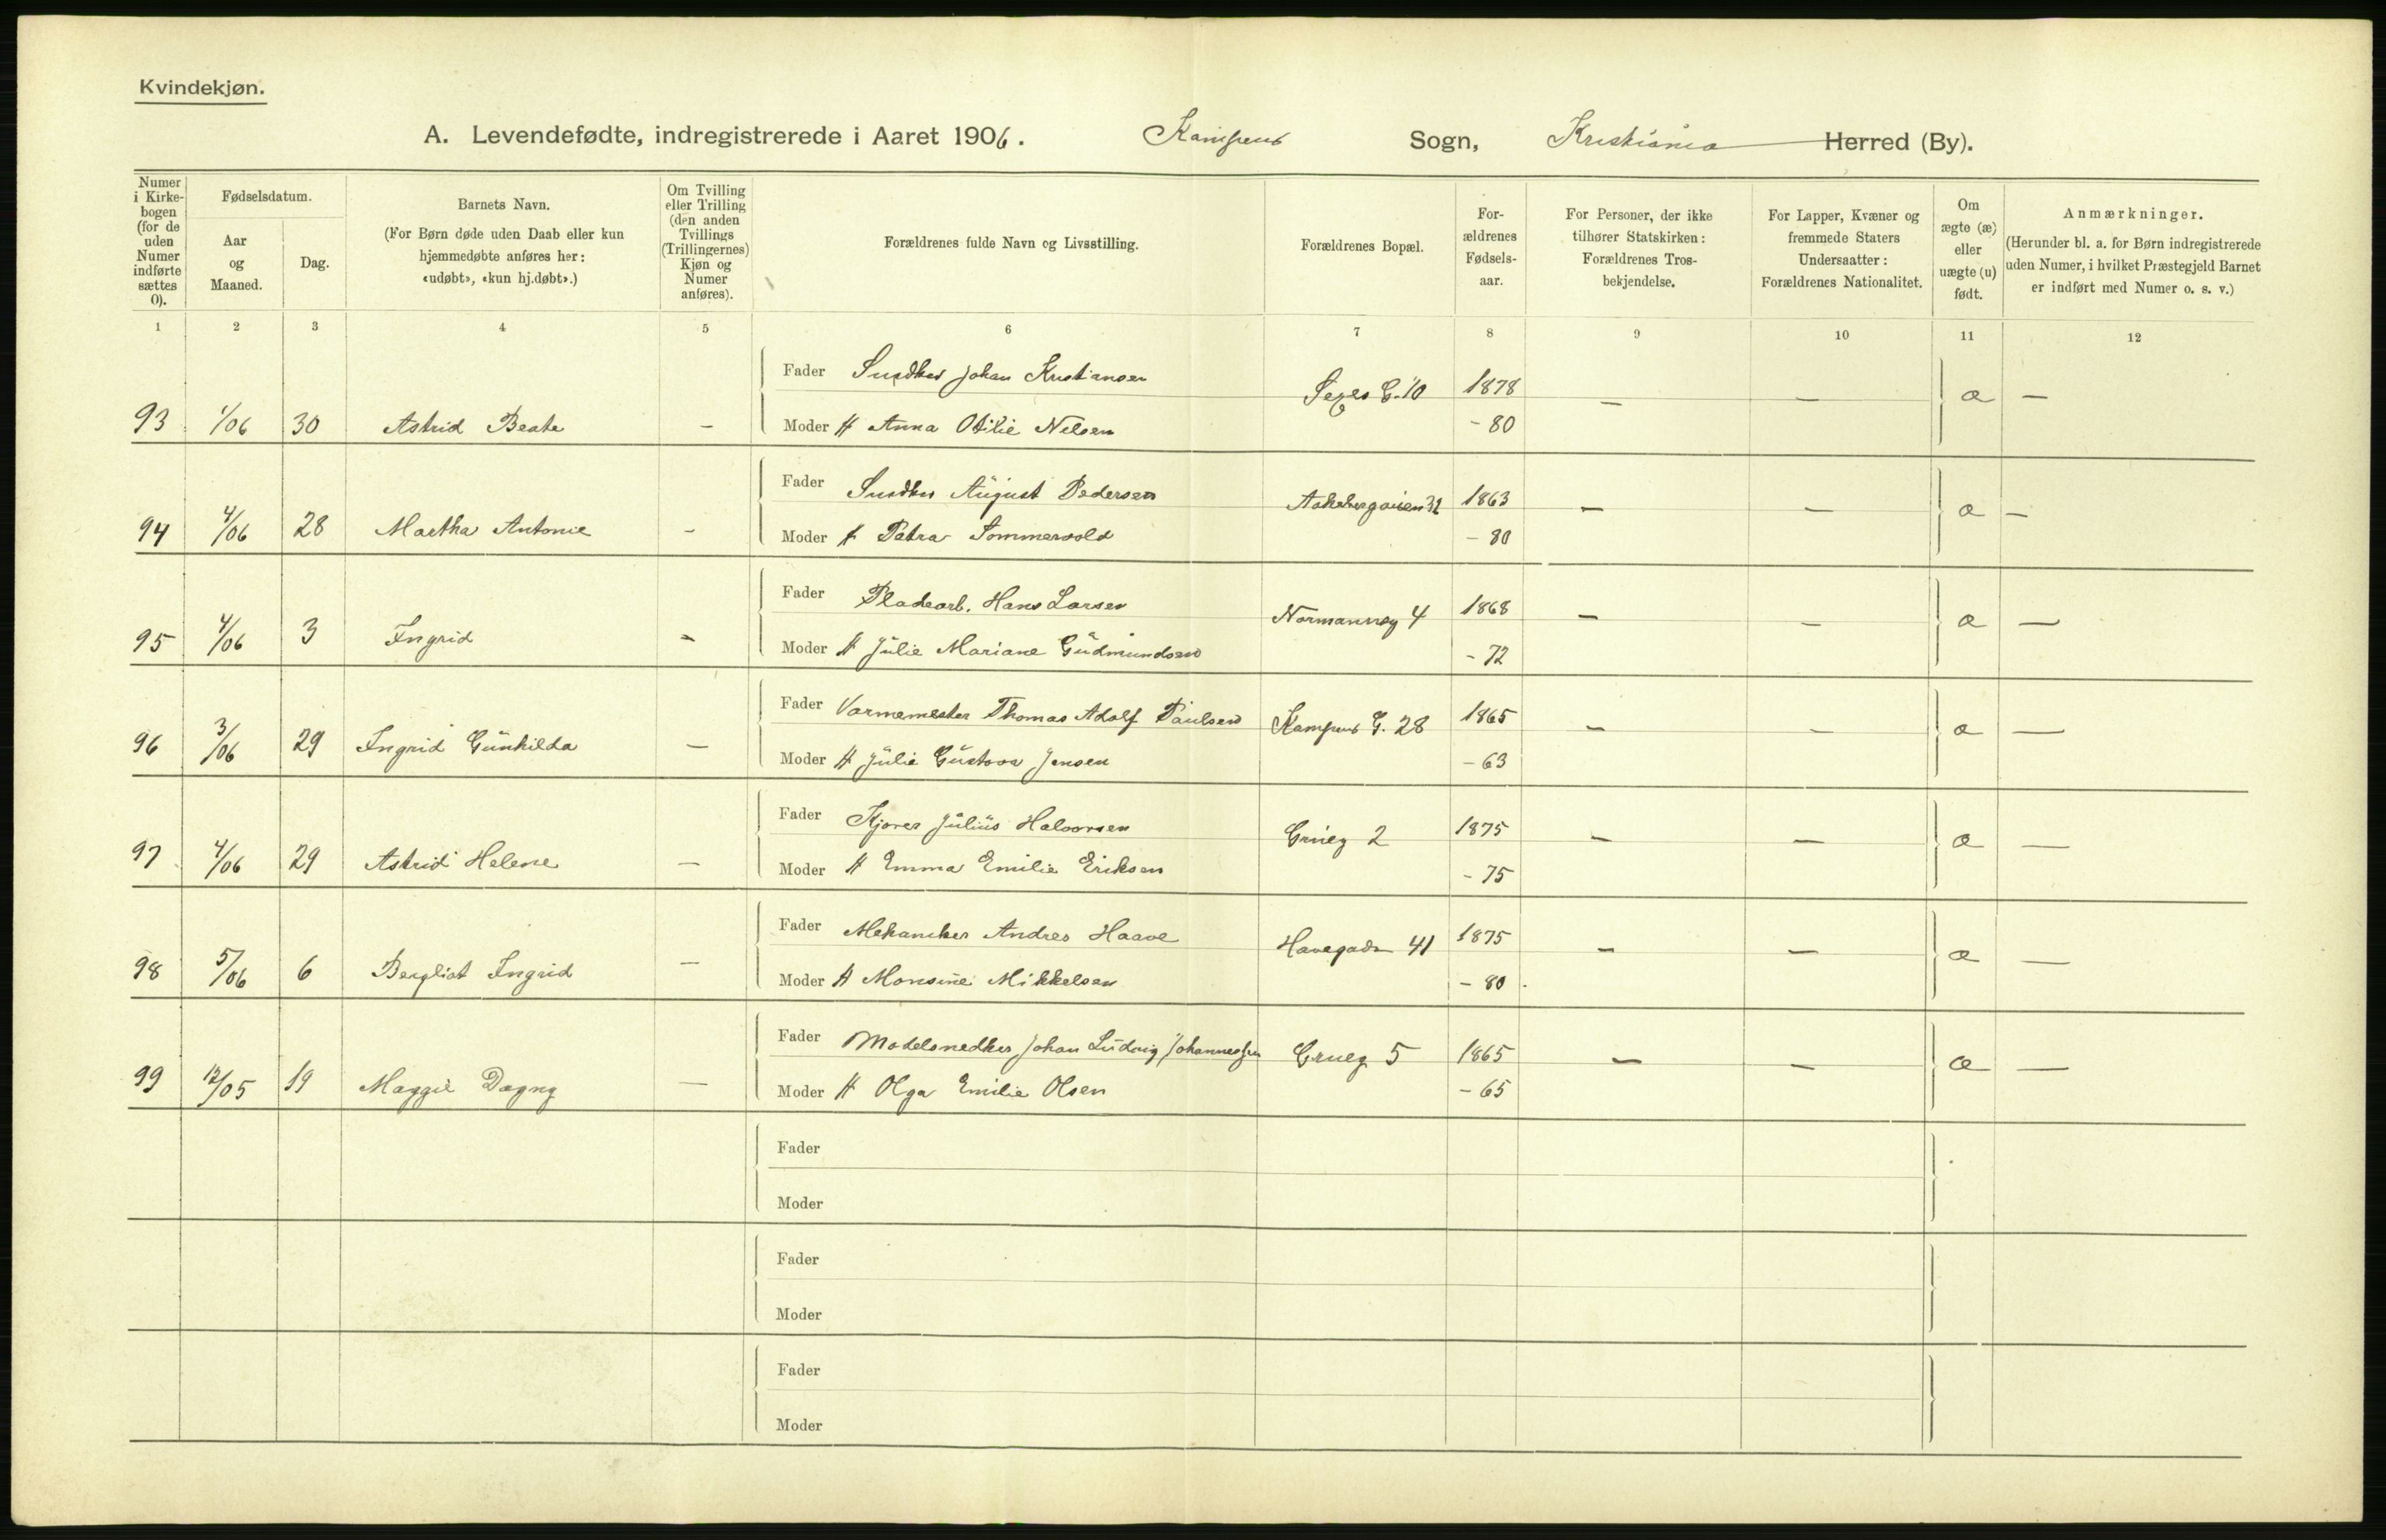 Kvindekjøn.
A. Levendefødte, indregistrerede i Aaret 1906. Kampens Sogn, Kristiania Herred (By).
Numer i Kirkebogen (for de uden Numer indførte sættes 0).
Fødselsdatum.
Aar og Maaned.
Dag.
Barnets Navn.
(For Børn døde uden Daab eller kun hjemmedøbte anføres her: «udøbt», «kun hj.døbt».)
Om Tvilling eller Trilling (den anden Tvillings (Trillingernes) Kjøn og Numer anføres).
Forældrenes fulde Navn og Livsstilling.
Forældrenes Bopæl.
Forældrenes Fødselsaar.
For Personer, der ikke tilhører Statskirken: Forældrenes Trosbekjendelse.
For Lapper, Kvæner og fremmede Staters Undersaatter: Forældrenes Nationalitet.
Om ægte (æ) eller uægte (u) født.
Anmærkninger.
(Herunder bl. a. for Børn indregistrerede uden Numer, i hvilket Præstegjeld Barnet er indført med Numer o. s. v.)
1 2 3 4 5 6 7 8 9 10 11 12
Fader Snedker Johan Kristiansen G. 10 1878
93 /06 30 Astrid Beate — Moder H Anna Otilie Nelsen - 80 — — æ —
Fader Snedker August Pedersen Aakebergveien 32 1863
94 4/06 28 Martha Antonie - Moder H Petra Sommervold - 80 — — æ —
Fader Pladearb. Hans Larsen Normannsg 4 1868
95 4/06 3 Ingrid - Moder H Julie Mariane Gudmundsen - 72 — — æ —
Fader Varmemester Thomas Adolf Paulsen Kampens G. 28 1865
96 3/06 29 Ingrid Gunhilda — Moder H Julie Gustava Jensen - 63 — — æ —
Fader Kjører Julius Halvorsen Grueg 2 1875
97 4/06 29 Astrid Helene — Moder H Emma Emilie Eriksen - 75 — — æ —
Fader Mekaniker Andres Haave Havegaden 41 1875
98 5/06 6 Bergliot Ingrid — Moder H Monsine Mikkelsen - 80 — — æ —
Fader Modelsnedker Johan Ludvig Johannessen Grueg 5 1865
99 12/05 19 Maggie Dagny — Moder H Olga Emilie Olsen - 65 — — æ —
Fader
Moder
Fader
Moder
Fader
Moder